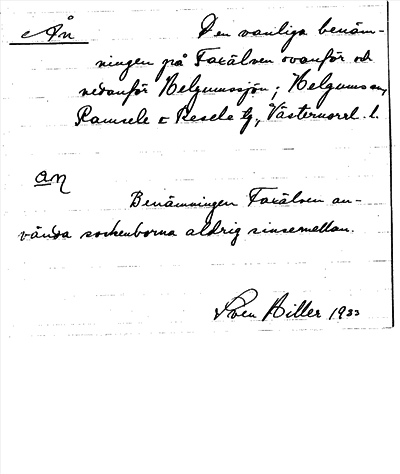 Ån Den vanliga benäm-
ningen på Faxälven ovanför och
nedanför Helgumssjön; Helgums sn,
Ramsele & Resele tg, Västernorrl. l.
an
Benämningen Faxälven an-
vända sockenborna aldrig sinsemellan.
Sven Hiller 1933